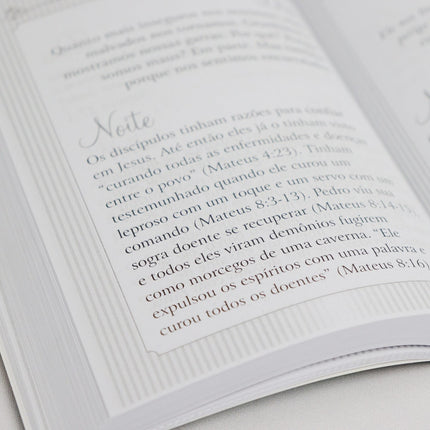 Quanto mais inseguros nos
malvados nos tornamos.
mostramos nossas garras. Por que?
somos maus? Em parte. Mas
porque nos sentimos
Noite
Os discípulos tinham razões para confiar
em Jesus. Até então eles já o tinham visto
"curando todas as enfermidades e doenças
entre o povo" (Mateus 4:23). Tinham
testemunhado quando ele curou um
leproso com um toque e um servo com um
comando (Mateus 8:3-13). Pedro viu sua
sogra doente se recuperar (Mateus 8:14-15)
e todos eles viram demônios fugirem
como morcegos de uma caverna. "Ele
expulsou os espíritos com uma palavra e
curou todos os doentes" (Mateus 8:16)